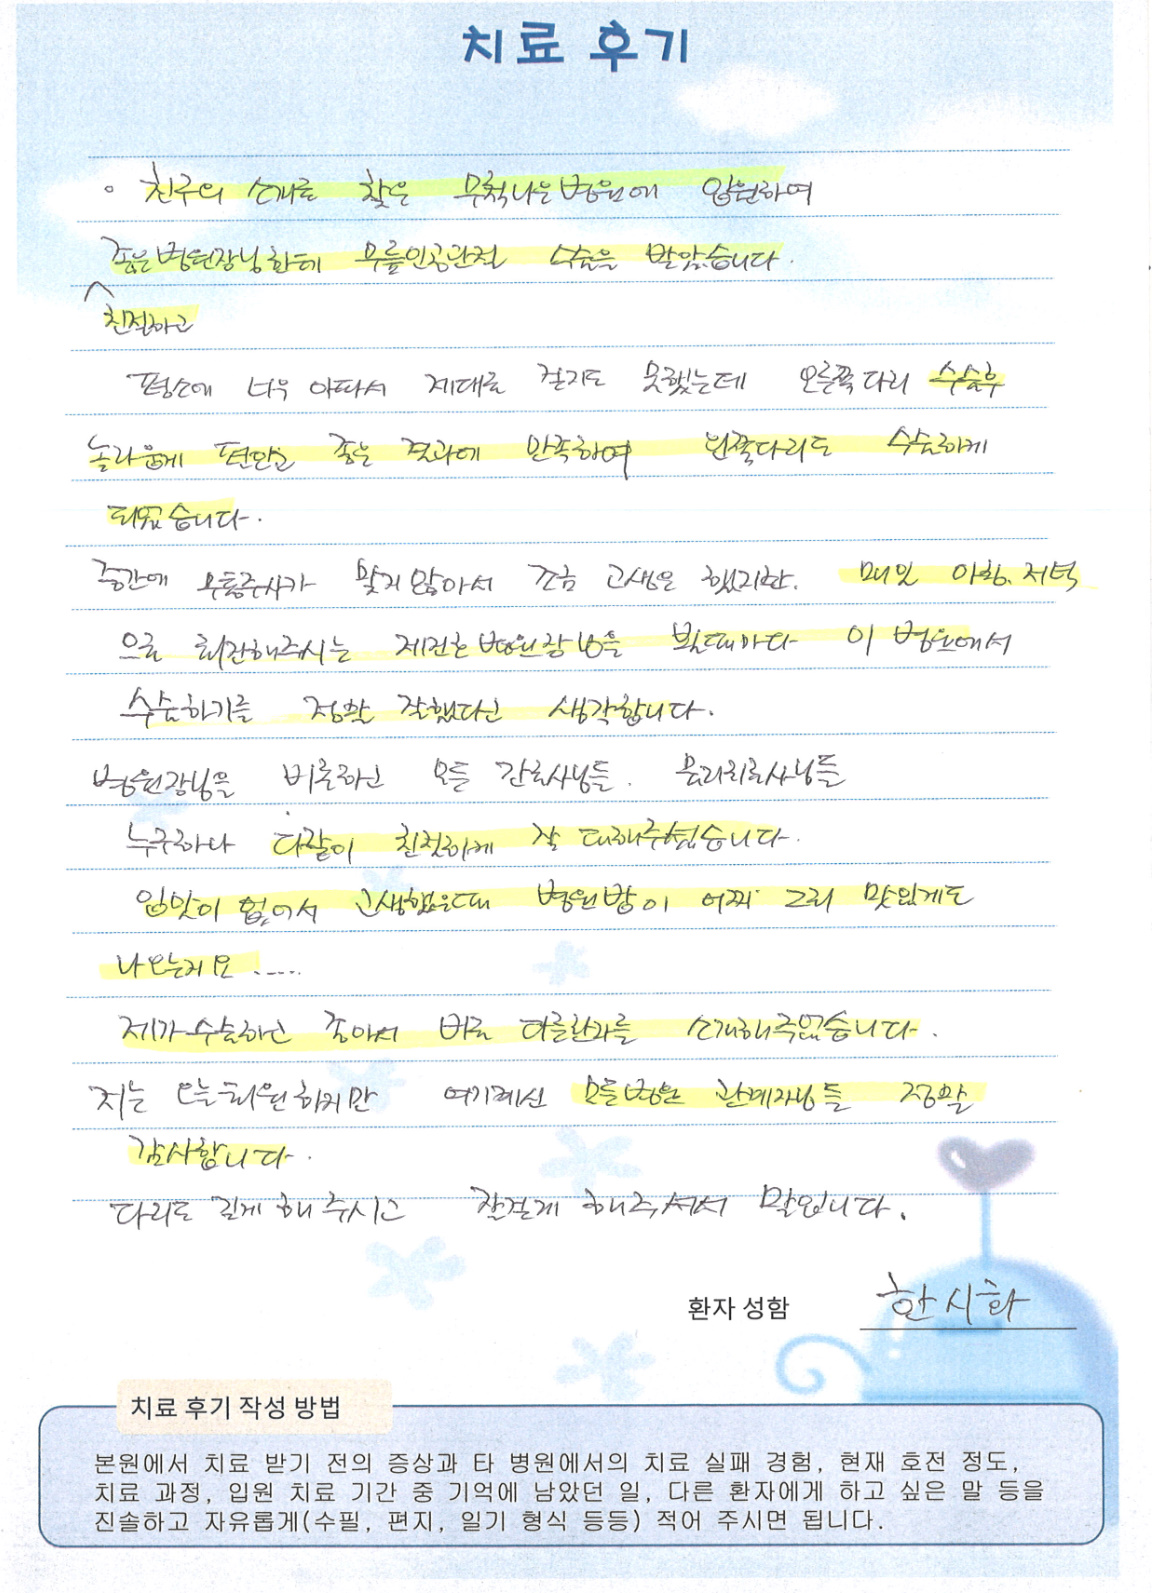 치료 후기
◦ 친구의 소개로 찾은 무척나은병원에 입원하여
좋은 병원장님한테 무릎인공관절 수술을 받았습니다.
^
친절하고
평소에 너무 아파서 제대로 걷지도 못했는데 오른쪽다리 수술후
놀라웁게 편안고 좋은 결과에 만족하여 왼쪽다리도 수술하게
되었습니다.
중간에 무통주사가 맞지않아서 조금 고생은 했지만. 매일 아침. 저녁
으로 회진해주시는 제진호병원장님을 볼때마다 이 병원에서
수술하기를 정말 잘했다고 생각합니다.
병원장님을 비롯하고 모든 간호사님들. 물리치료사님들
누구하나 다같이 친절하게 잘 대해주셨습니다.
입맛이 없어서 고생했을때 병원밥이 어찌 그리 맛있게도
나오는지요 .....
제가 수술하고 좋아서 바로 다른환자를 소개해주었습니다.
저는 오늘퇴원하지만 여기계신 모든병원 관계자님들 정말
감사합니다.
다리도 길게 해주시고 잘걷게 해주셔서 말입니다.
환자 성함 한시화
치료 후기 작성 방법
본원에서 치료 받기 전의 증상과 타 병원에서의 치료 실패 경험, 현재 호전 정도,
치료 과정, 입원 치료 기간 중 기억에 남았던 일, 다른 환자에게 하고 싶은 말 등을
진솔하고 자유롭게(수필, 편지, 일기 형식 등등) 적어 주시면 됩니다.